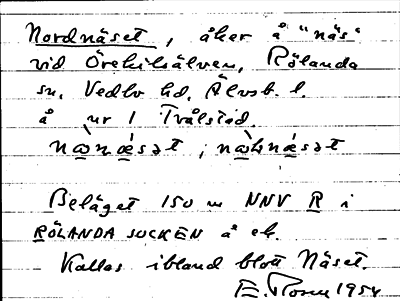 Nordnäset, åker å "näs"
vid Örekilsälven, Rölanda
sn, Vedbo hd, Älvsb. l.
å nr 1 Tvålstad.
Beläget 150 m NNV R i
RÖLANDA SOCKEN å ek.
Kallas ibland blott Näset.
E. Rosen 1954